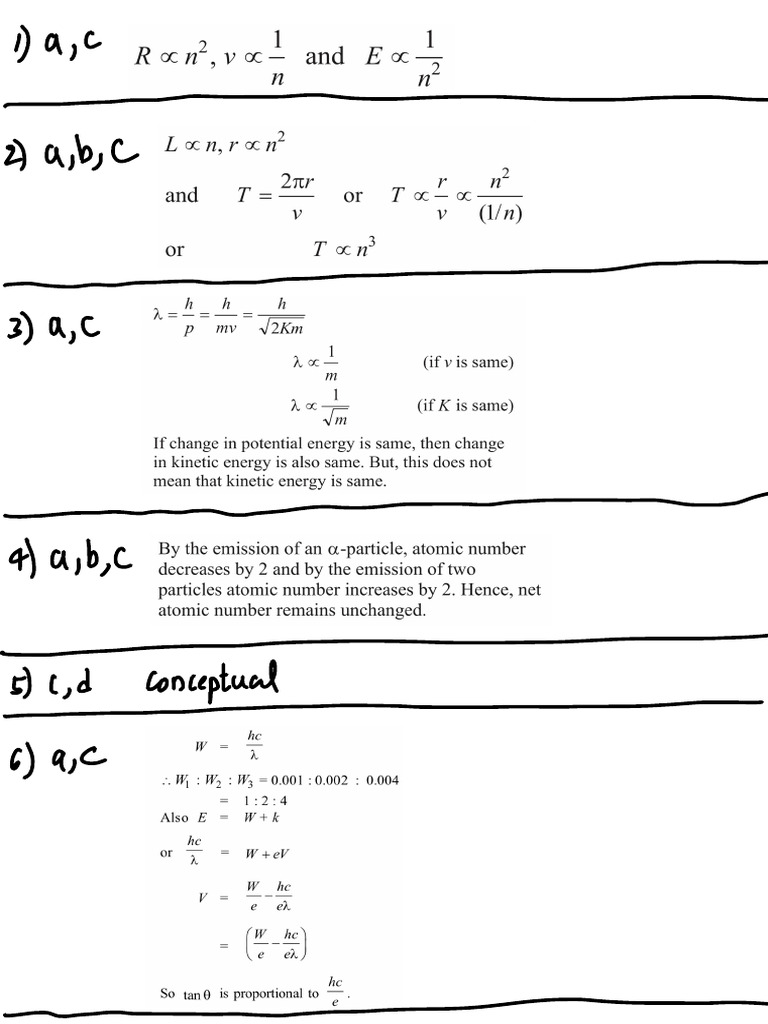 1) a,c R ∝ n², v ∝ 1/n and E ∝ 1/n²
2) a,b,c L ∝ n, r ∝ n²
and T = 2πr/v or T ∝ r/v ∝ n²/(1/n)
or T ∝ n³
3) a,c λ = h/p = h/mv = h/√2Km
λ ∝ 1/m (if v is same)
λ ∝ 1/√m (if K is same)
If change in potential energy is same, then change
in kinetic energy is also same. But, this does not
mean that kinetic energy is same.
4) a,b,c By the emission of an α-particle, atomic number
decreases by 2 and by the emission of two
particles atomic number increases by 2. Hence, net
atomic number remains unchanged.
5) c,d Conceptual
6) a,c W = hc/λ
∴ W₁ : W₂ : W₃ = 0.001 : 0.002 : 0.004
= 1 : 2 : 4
Also E = W + k
or hc/λ = W + eV
V = W/e − hc/eλ
= (W/e − hc/eλ)
So tan θ is proportional to hc/e .